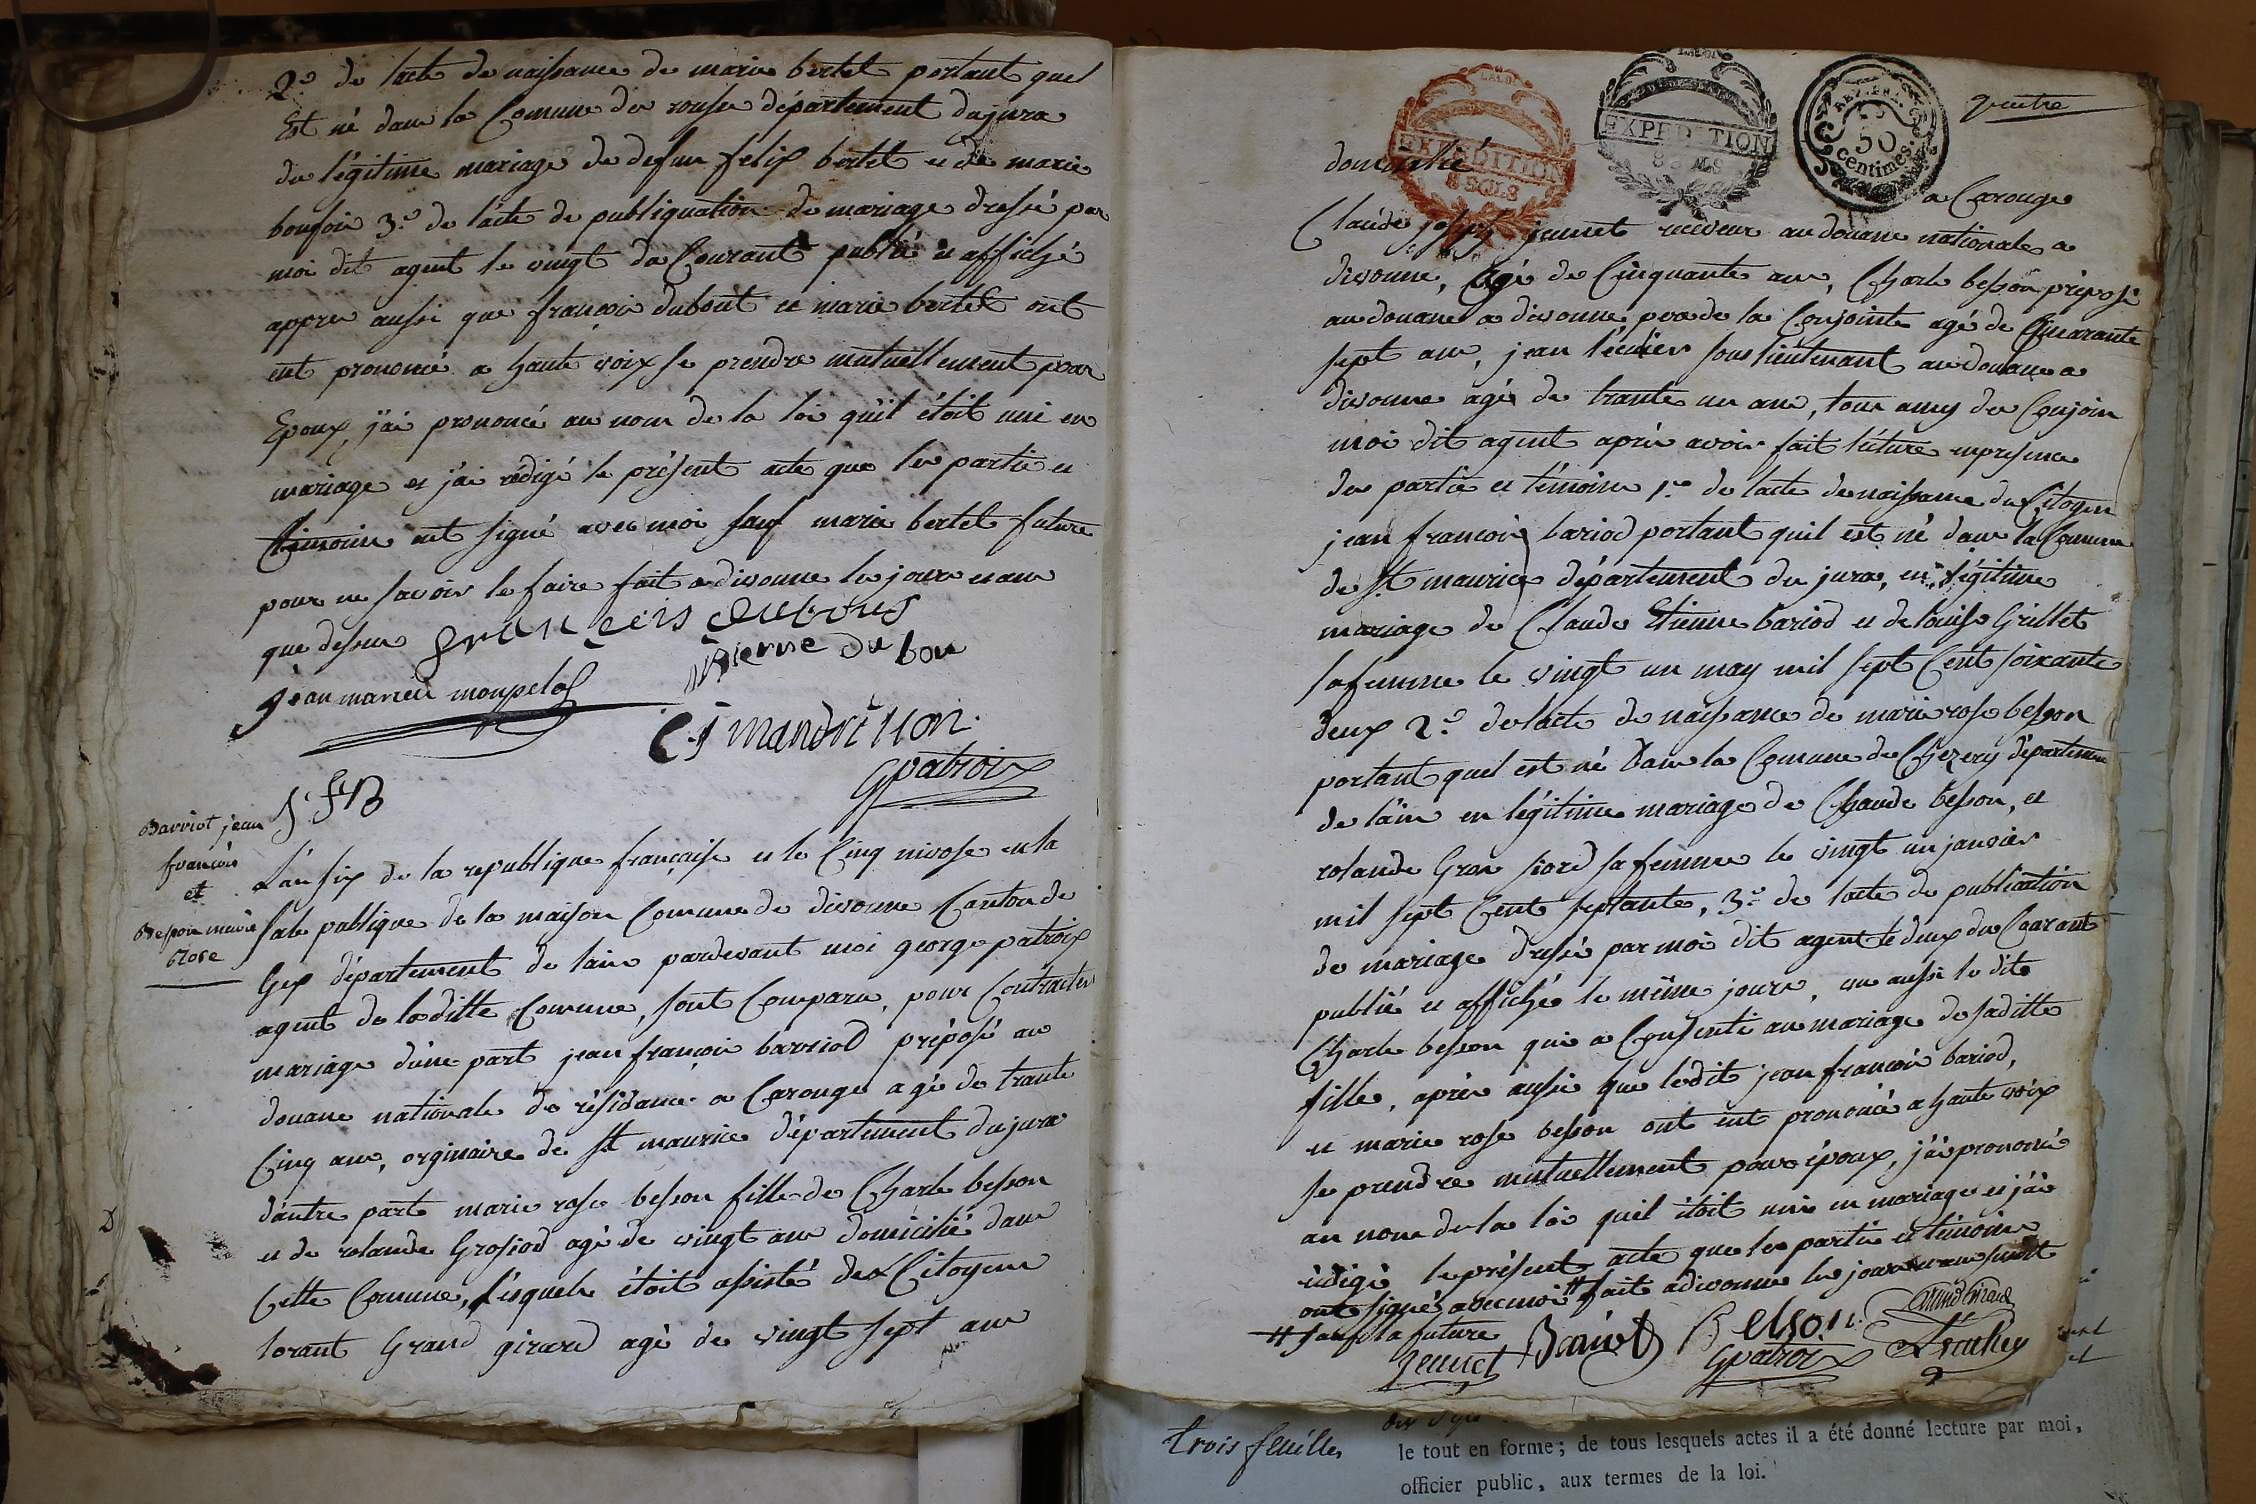 2.o de lacte de naissance de marie bertet portant quel
Est né dans la Comune de rousse département du jura
du légitime mariage de defun felix bertet et de marie
3.o de lacte de publiquation de mariage dressé par
moi dit agent le vingt du Courant publié et affiché
appres aussi que françois dubout et marie bertet ont
eut prononcé a haute voix se prendre mutuellement pour
Epoux, j'ai prononcé au nom de la loi qu'il étoit uni en
mariage et j'ai rédigé le présent acte que les partie et
témoins ont signé avec moi sauf marie bertet future
pour ne savoir le faire fait a divonne les jours et an
que dessus françois dubout
pierre du bou
jean marie monpela
C j mandrillon
G patroix
Barriot jean
françois
et
Besson marie
Rose
Lan six de la republique française et le Cinq nivose en la
sale publique de la maison Comune de divonne Canton de
Gex département de lain pardevant moi george patroix
agent de laditte Comune, sont Comparu, pour Contracter
mariage d'une part jean françois barriod préposé au
douane nationale de résidance a Carouge agé de trante
Cinq ans, orginaire de St maurice département du jura
dautre part marie rose besson fille de Charle besson
et de rolande Grosiod agé de vingt ans domicilié dans
Cette Comune, lesquels étoit assisté des Citoyens
lorant Grand girard agé de vingt sept ans
LA LOI
EXPEDITION
8 SOLS
LA LOI
EXPEDITION
8 SOLS
REP. FRA.
50
centimes.
quatre
domicilié
a Carouge
Claude joseph jeunet receveur au douane nationale a
divonne, agé de Cinquante ans, Charle besson préposé
au douane a divonne pere de la Conjointe agé de Quarante
sept ans, jean lécuier sous lieutenant au douane a
divonne agé de trante un ans, tous amy des Conjoin
moi dit agent après avoir fait léture en presence
des partie et témoins 1.o de lacte de naissance du Citoyen
jean françois bariod portant quil est né dans la Comune
de St maurice département du jura, en légitime
mariage de Claude Etienne bariod et de louise Grillet
sa femme le vingt un may mil sept Cent soixante
deux 2.o de lacte de naissance de marie rose besson
portant quel est né dans la Comune de Chezery département
de lain en légitime mariage de Charle besson, et
rolande Gros siord sa femme le vingt un janvier
mil sept Cent septante, 3.o de lacte de publication
de mariage dressé par moi dit agent le deux du Courant
publié et affiché le même jour, vu aussi le dit
Charle besson qui a Consenti au mariage de saditte
fille, après aussi que ledit jean françois bariod,
et marie rose besson ont eut prononcé a haute voix
se prendre mutuellement pour époux, j'ai prononcé
au nom de la loi quil étoit uni en mariage et j'ai
rédigé le présent acte que les partie et témoins
ont signés avec moi # fait a divonne les jour et an susdit
# sauf la future
Jeunet Bariod Besson Grand Girard
G patroix Lécuier
trois feuilles
le tout en forme ; de tous lesquels actes il a été donné lecture par moi,
officier public, aux termes de la loi.